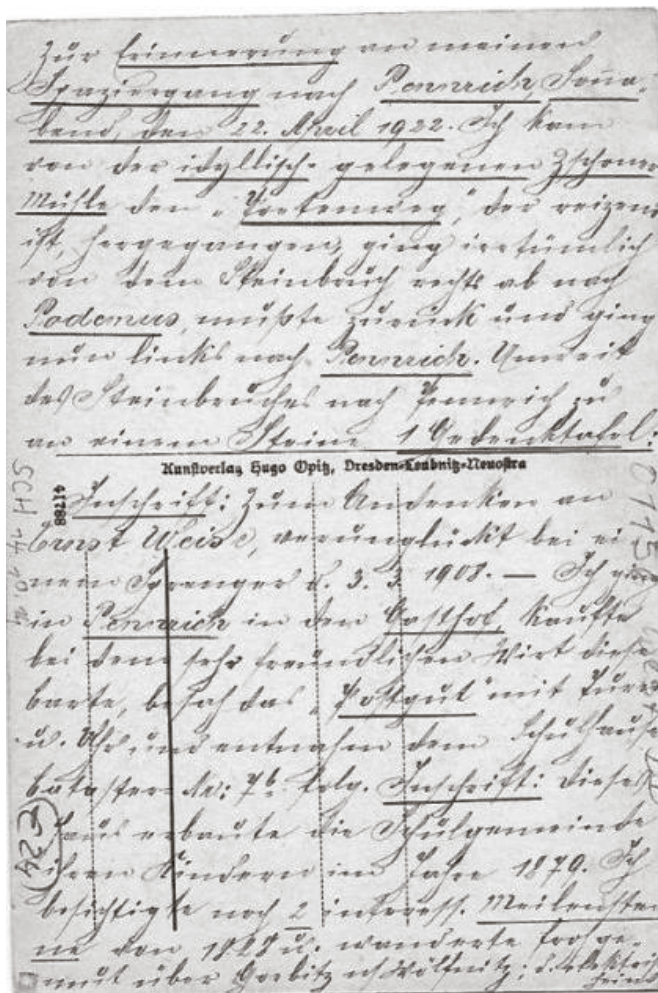 Zur Erinnerung an meinen
Spaziergang nach Pennrich, Sonna-
bend, den 22. April 1922. Ich kam
von der idyllisch gelegenen Zschoner
Mühle den „Poetenweg“, der reizend
ist, hergegangen, ging irrtümlich
von dem Steinbruch rechts ab nach
Podemus, mußte zurück und ging
nun links nach Pennrich. Unweit
des Steinbruches nach Pennrich zu
an einem Steine 1 Gedenktafel:
Kunstverlag Hugo Opitz, Dresden-Leubnitz-Neuostra
88214
Inschrift: Zum Andenken an
Ernst Weise, verunglückt bei ei-
nem Sprengen d. 3. 3. 1908. — Ich ging
in Pennrich in den Gasthof, kaufte
bei dem sehr freundlichen Wirt diese
Karte, besah das „Postgut“ mit Turm
u. Uhr und entnahm dem Schulhause
Kataster No: 7b. folg. Inschrift: Dieses
Haus erbaute die Schulgemeinde
ihren Kindern im Jahre 1870. Ich
besichtigte noch 2 interess. Meilenstei-
ne von 1828 u. wanderte frohge-
mut über Gorbitz n/ Wölfnitz; d. elektrisch
heim